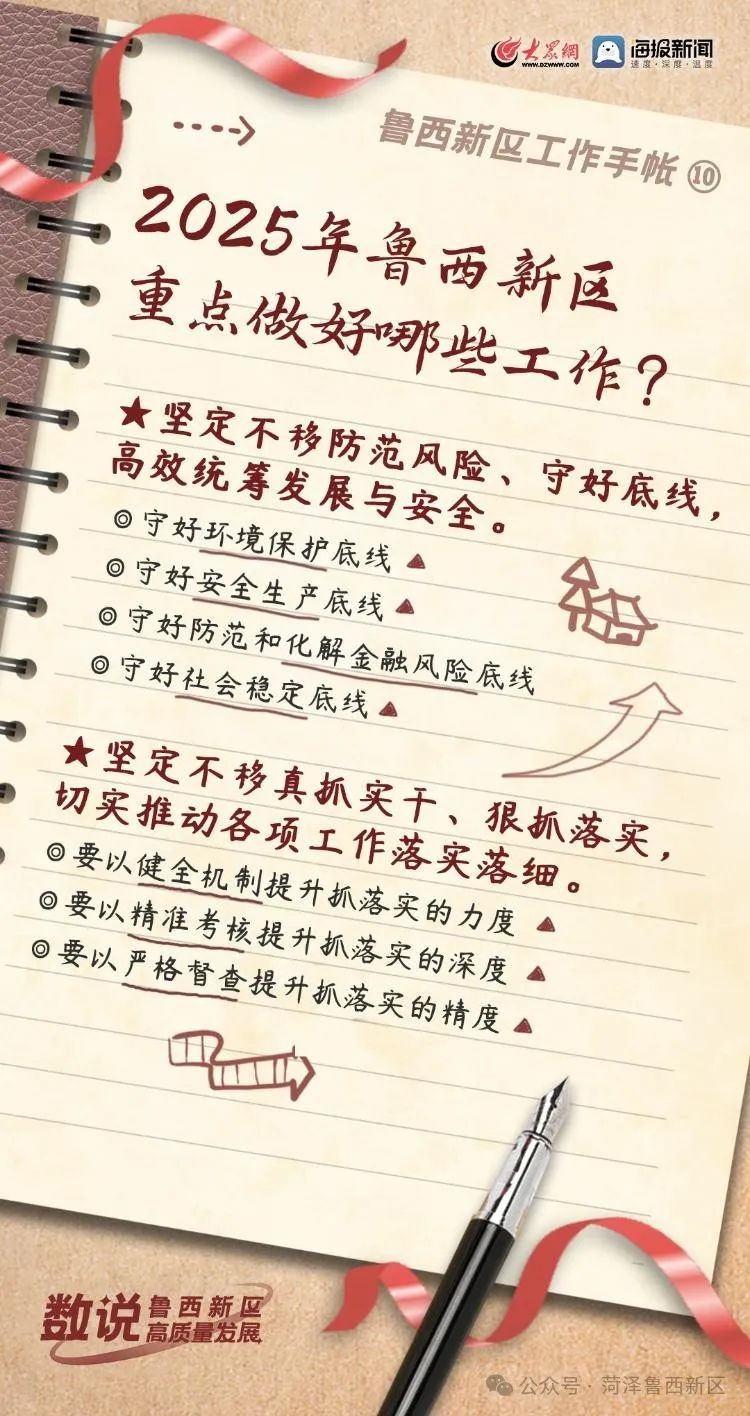 大众网
WWW.DZWWW.COM
海报新闻
速度·深度·温度
鲁西新区工作手帐⑩
2025年鲁西新区
重点做好哪些工作？
★坚定不移防范风险、守好底线，
高效统筹发展与安全。
◎守好环境保护底线▲
◎守好安全生产底线▲
◎守好防范和化解金融风险底线
◎守好社会稳定底线▲
★坚定不移真抓实干、狠抓落实，
切实推动各项工作落实落细。
◎要以健全机制提升抓落实的力度▲
◎要以精准考核提升抓落实的深度▲
◎要以严格督查提升抓落实的精度▲
数说鲁西新区
高质量发展
公众号·菏泽鲁西新区